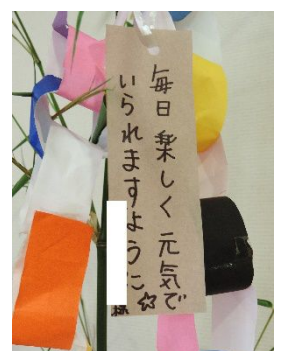 毎日楽しく元気で
いられますように☆
様